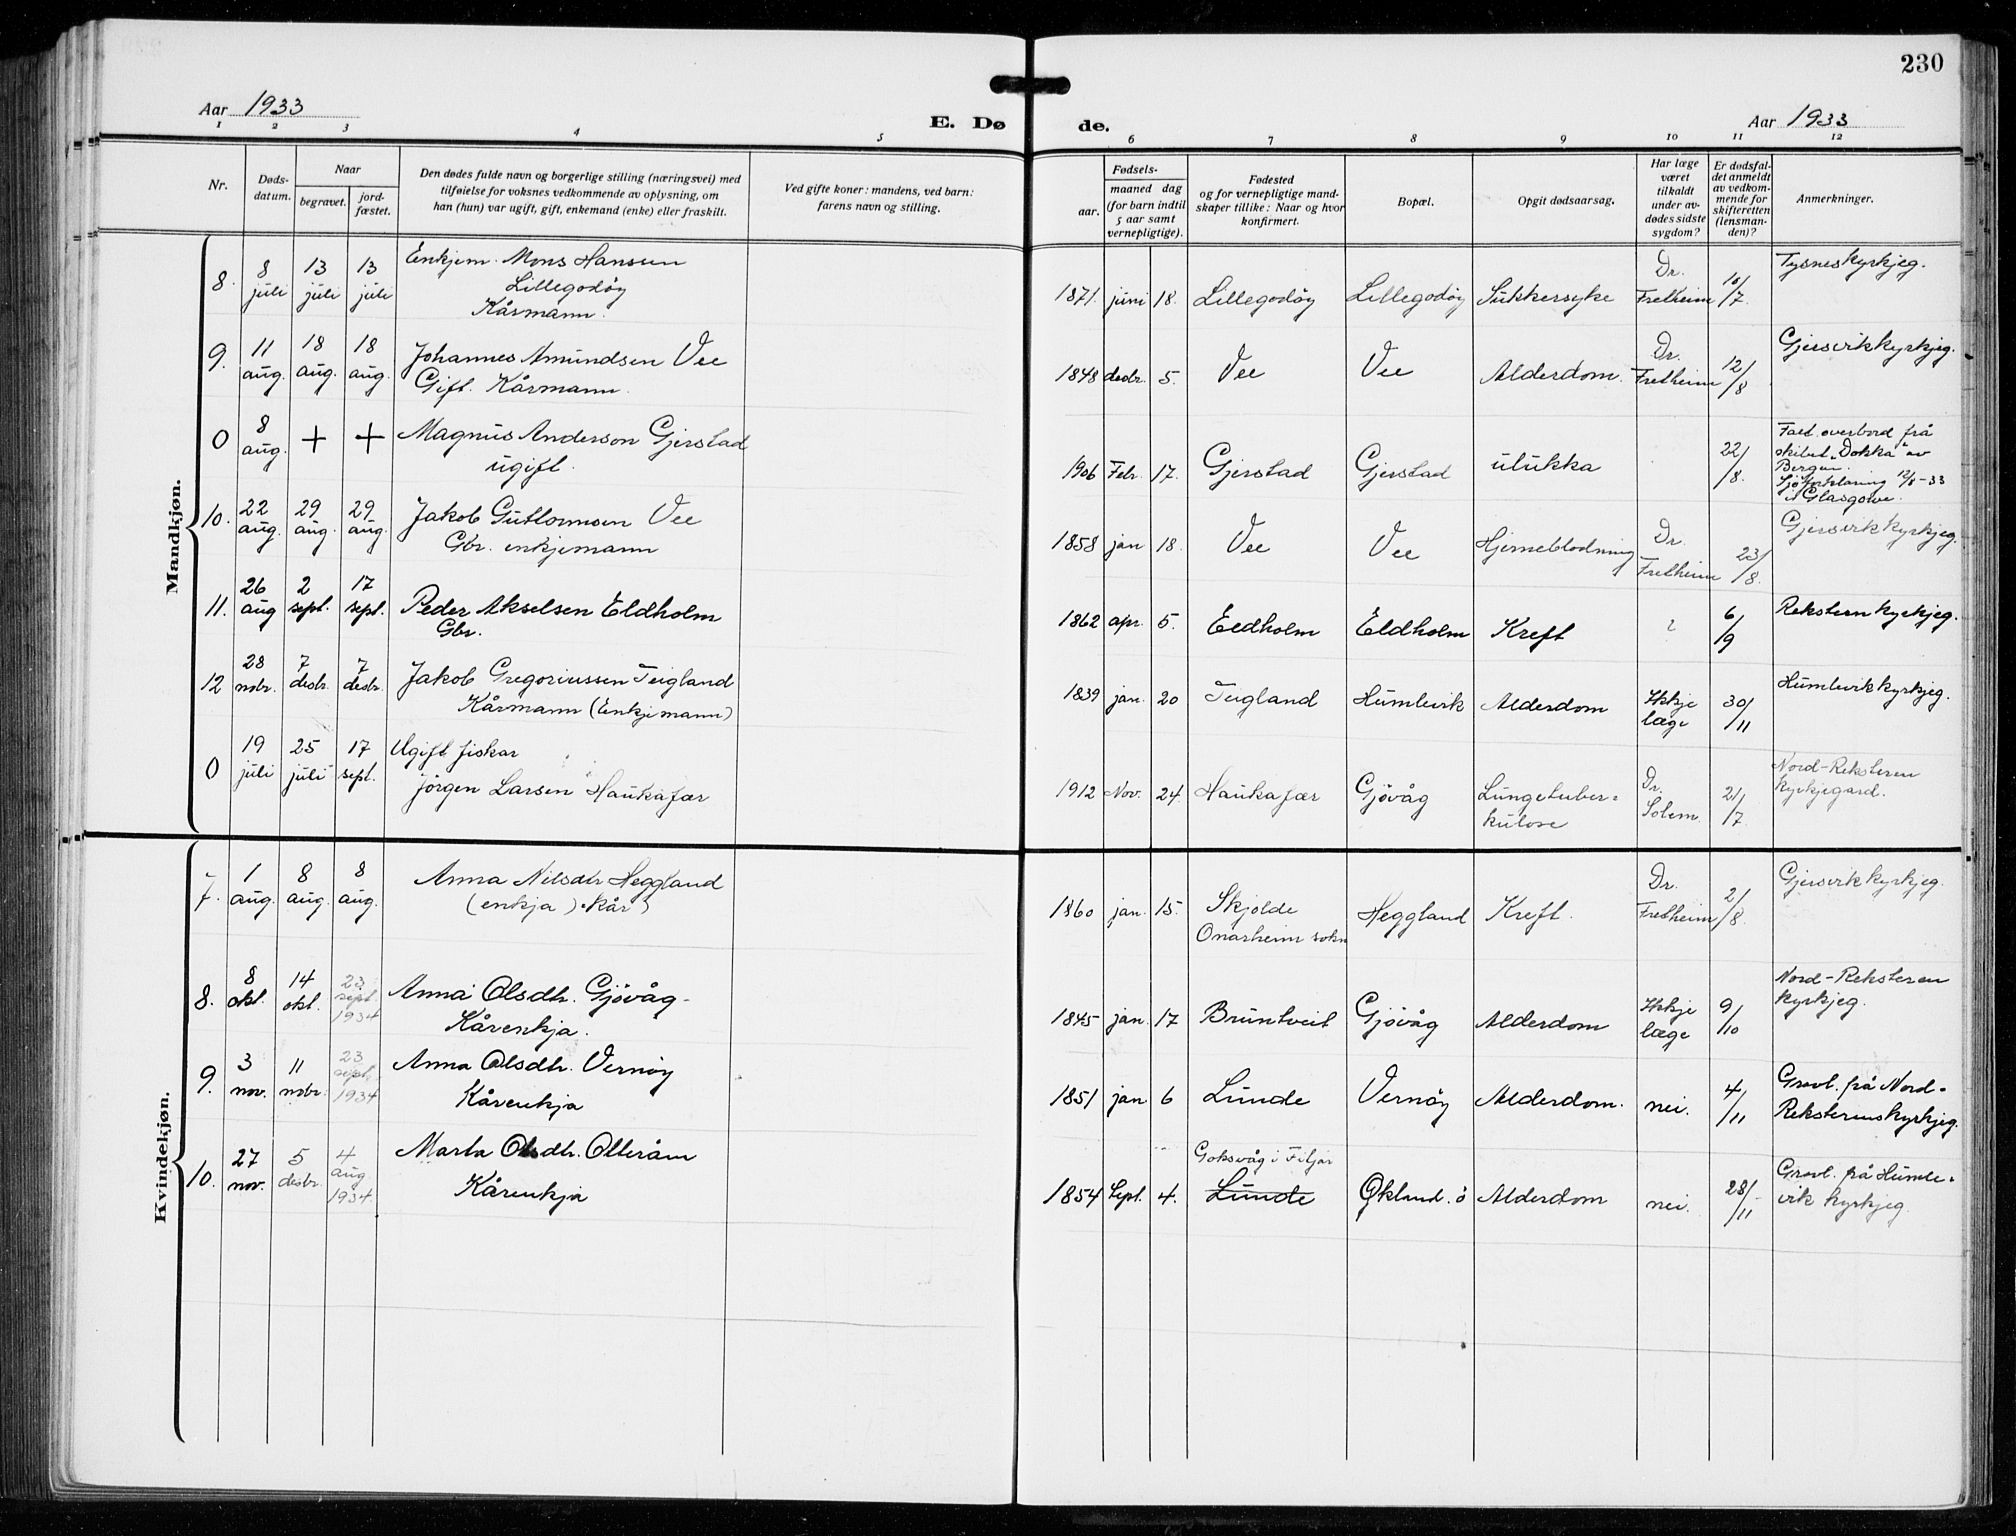 230
Aar 1933
E. Dø
de.
Aar 1933
1 2 3 4 5 6 7 8 9 10 11 12
Nr.
Døds-
datum.
Naar
begravet.
jord-
fæstet.
Den dødes fulde navn og borgerlige stilling (næringsvei) med
tilføielse for voksnes vedkommende av oplysning, om
han (hun) var ugift, gift, enkemand (enke) eller fraskilt.
Ved gifte koner: mandens, ved barn:
farens navn og stilling.
Fødsels-
aar.
maaned dag
(for barn indtil
5 aar samt
vernepligtige).
Fødested
og for vernepligtige mand-
skaper tillike: Naar og hvor
konfirmert.
Bopæl.
Opgit dødsaarsag.
Har læge
været
tilkaldt
under av-
dødes sidste
sygdom?
Er dødsfal-
det anmeldt
av vedkom-
mende for
skifteretten
(lensman-
den)?
Anmerkninger.
Mandkjøn.
8. 8 juli 13 juli 13 juli Enkjem. Mons Hanssen
Lillegodøy
Kårmann.
1871. juni 18. Lillegodøy Lillegodøy Sukkersyke Dr. Fretheim 10/7. Tysneskyrkjeg.
9. 11 aug. 18 aug. 18 aug. Johannes Amundsen Vee
Gift. Kårmann.
1848 desbr. 5. Vee Vee Alderdom. Dr. Fretheim 12/8 Gjersvikkyrkjeg.
0 8 aug. + + Magnus Anderson Gjerstad
ugift.
1906 Febr. 17. Gjerstad Gjerstad ulukka 22/8. Fall overbord frå
skibet "Dokka" av
Bergen.
Sjøforklaring 12/8-33
i Glasgow.
10. 22 aug. 29 aug. 29 aug. Jakob Guttormsen Vee
Gbr. enkjemann
1858 jan 18. Vee Vee Hjerneblodning Dr. Fretheim 23/8. Gjersvikkyrkjeg.
11. 26 aug 2 sept. 17 sept. Peder Akselsen Eldholm
Gbr.
1862 apr. 5. Eldholm Eldholm Kreft ? 6/9 Reksternkyrkjeg.
12 28 nobr. 7 desbr. 7 desbr. Jakob Gregoriussen Teigland
Kårmann (Enkjemann)
1839 jan. 20 Teigland Humlevik Alderdom Ikkje læge 30/11 Humlevikkyrkjeg.
0 19 juli 25 juli 17 sept. Ugift fiskar
Jörgen Larsen Haukafær
1912 Nov. 24. Haukafær Gjövåg Lungetuber-
kulose
Dr. Solem. 21/7. Nord-Reksteren
kyrkjegard.
Kvindekjøn.
7. 1 aug. 8 aug. 8 aug. Anna Nilsdtr Heggland
(enkja) kår)
1860 jan. 15. Skjolde
Onarheim sokn
Heggland Kreft. Dr. Fretheim 2/8. Gjersvikkyrkjeg.
8. 8 okt. 14 okt. 23 sept. 1934 Anna Olsdtr. Gjövåg-
Kårenkja.
1845 jan. 17 Bruntveit Gjövåg Alderdom Ikkje læge 9/10 Nord-Reksteren
kyrkjeg.
9. 3 nov. 11 nobr. 23 sept. 1934 Anna Olsdtr. Vernøy
Kårenkja
1851 jan 6 Lunde Vernøy Alderdom. nei. 4/11 Gravl. frå Nord-
Reksterenskyrkjeg.
10. 27 nov. 5 desbr. 4 aug 1934. Marta Olsdtr. Otteråm
Kårenkja
1854 Sept. 4. Goksvåg i Fitjar
Lunde
Økland. ö Alderdom nei. 28/11 Gravl. på Humle-
vik kyrkjeg.